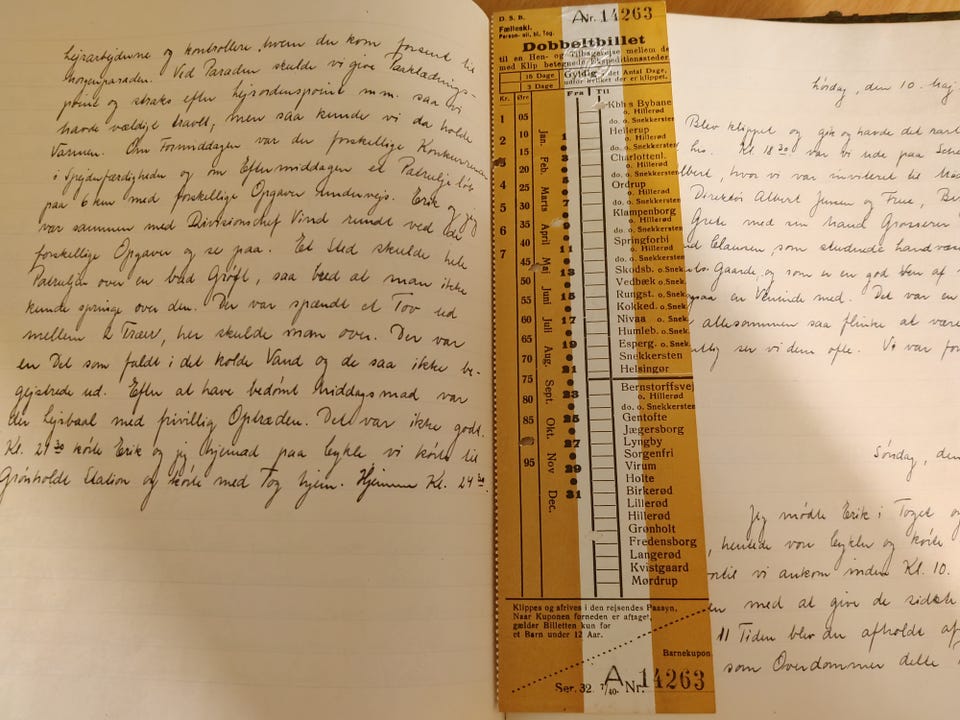 Lejrarbejderne og kontrollere, hvem der kom forsent til
morgenparaden. Ved Paraden skulde vi give Paaklædnings-
point og straks efter lejrordenspoint m.m. saa vi
havde vældige travlt, men saa kunde vi da holde
Varmen. Om Formiddagen var der forskellige Konkurrencer
i Spejderfærdigheder og om Eftermiddagen et Patruljeløb
paa 6 km med forskellige Opgaver undervejs. Erik og jeg
var sammen med Divisionschef Vind rundt ved de
forskellige Opgaver og se paa. Et Sted skulde hele
Patruljen over en bred Grøft, saa bred at man ikke
kunde springe over den. Der var spændt et Tov ud
mellem 2 Træer, her skulde man over. Der var
en Del som faldt i det kolde Vand og de saa ikke be-
gejstrede ud. Efter at have bedømt Middagsmad var
der Lejrbaal med frivillig Optræden. Det var ikke godt.
Kl. 21 30 kørte Erik og jeg hjemad paa Cykle vi kørte til
Grønholdt Station og kørte med Tog hjem. Hjemme Kl. 24 30.
D. S. B.
A Nr. 14263
Fælleskl.
Person- ell. bl. Tog.
Dobbeltbillet
til en Hen- og Tilbagerejse mellem de
med Klip betegnede Ekspeditionssteder.
16 Dage
3 Dage
Gyldig det Antal Dage,
udfor hvilket der er klippet.
Kr. Øre Fra Til
1 2 3 4 5 6 7
05 10 15 20 25 30 35 40 45 50 55 60 65 70 75 80 85 95
Jan. Feb. Marts April Maj Juni Juli Aug. Sept. Okt. Nov. Dec.
1 3 5 7 11 13 15 17 19 21 23 25 27 29 31
Kbh s Bybane
o. Hillerød
do. o. Snekkersten
Hellerup
o. Hillerød
do. o. Snekkersten
Charlottenl.
o. Hillerød
do. o. Snekkersten
Ordrup
o. Hillerød
do. o. Snekkersten
Klampenborg
o. Hillerød
do. o. Snekkersten
Springforbi
o. Hillerød
do. o. Snekkersten
Skodsb. o. Snek.
Vedbæk o. Snek.
Rungst. o. Snek.
Kokked. o. Snek.
Nivaa o. Snek.
Humleb. o. Snek.
Esperg. o. Snek.
Snekkersten
Helsingør
Bernstorffsvej
o. Hillerød
do. o. Snekkersten
Gentofte
Jægersborg
Lyngby
Sorgenfri
Virum
Holte
Birkerød
Lillerød
Hillerød
Grønholt
Fredensborg
Langerød
Kvistgaard
Mørdrup
Klippes og afrives i den rejsendes Paasyn,
Naar Kuponen forneden er aftaget,
gælder Billetten kun for
et Barn under 12 Aar.
Barnekupon
Ser. 32. 7/40. A Nr. 14263
Lørdag, den 10. Maj.
Blev klippet og gik og havde det rart
hos. Kl. 18 30 var vi ude paa
hvor vi var inviteret til
Direktør Albert Jensen og Frue,
Grete med sin Mand Grosserer
Clausen, som studerede
Gaarde, og som er en god Ven af
en Veninde med. Det var en
allesammen saa flinke at være
ser vi dem ofte. Vi var
Søndag, den
Jeg mødte Erik i Toget og
hentede vore Cykler og kørte
vi ankom inden Kl. 10.
med at give de sidste
11 Tiden blev der afholdt
som Overdommer delte